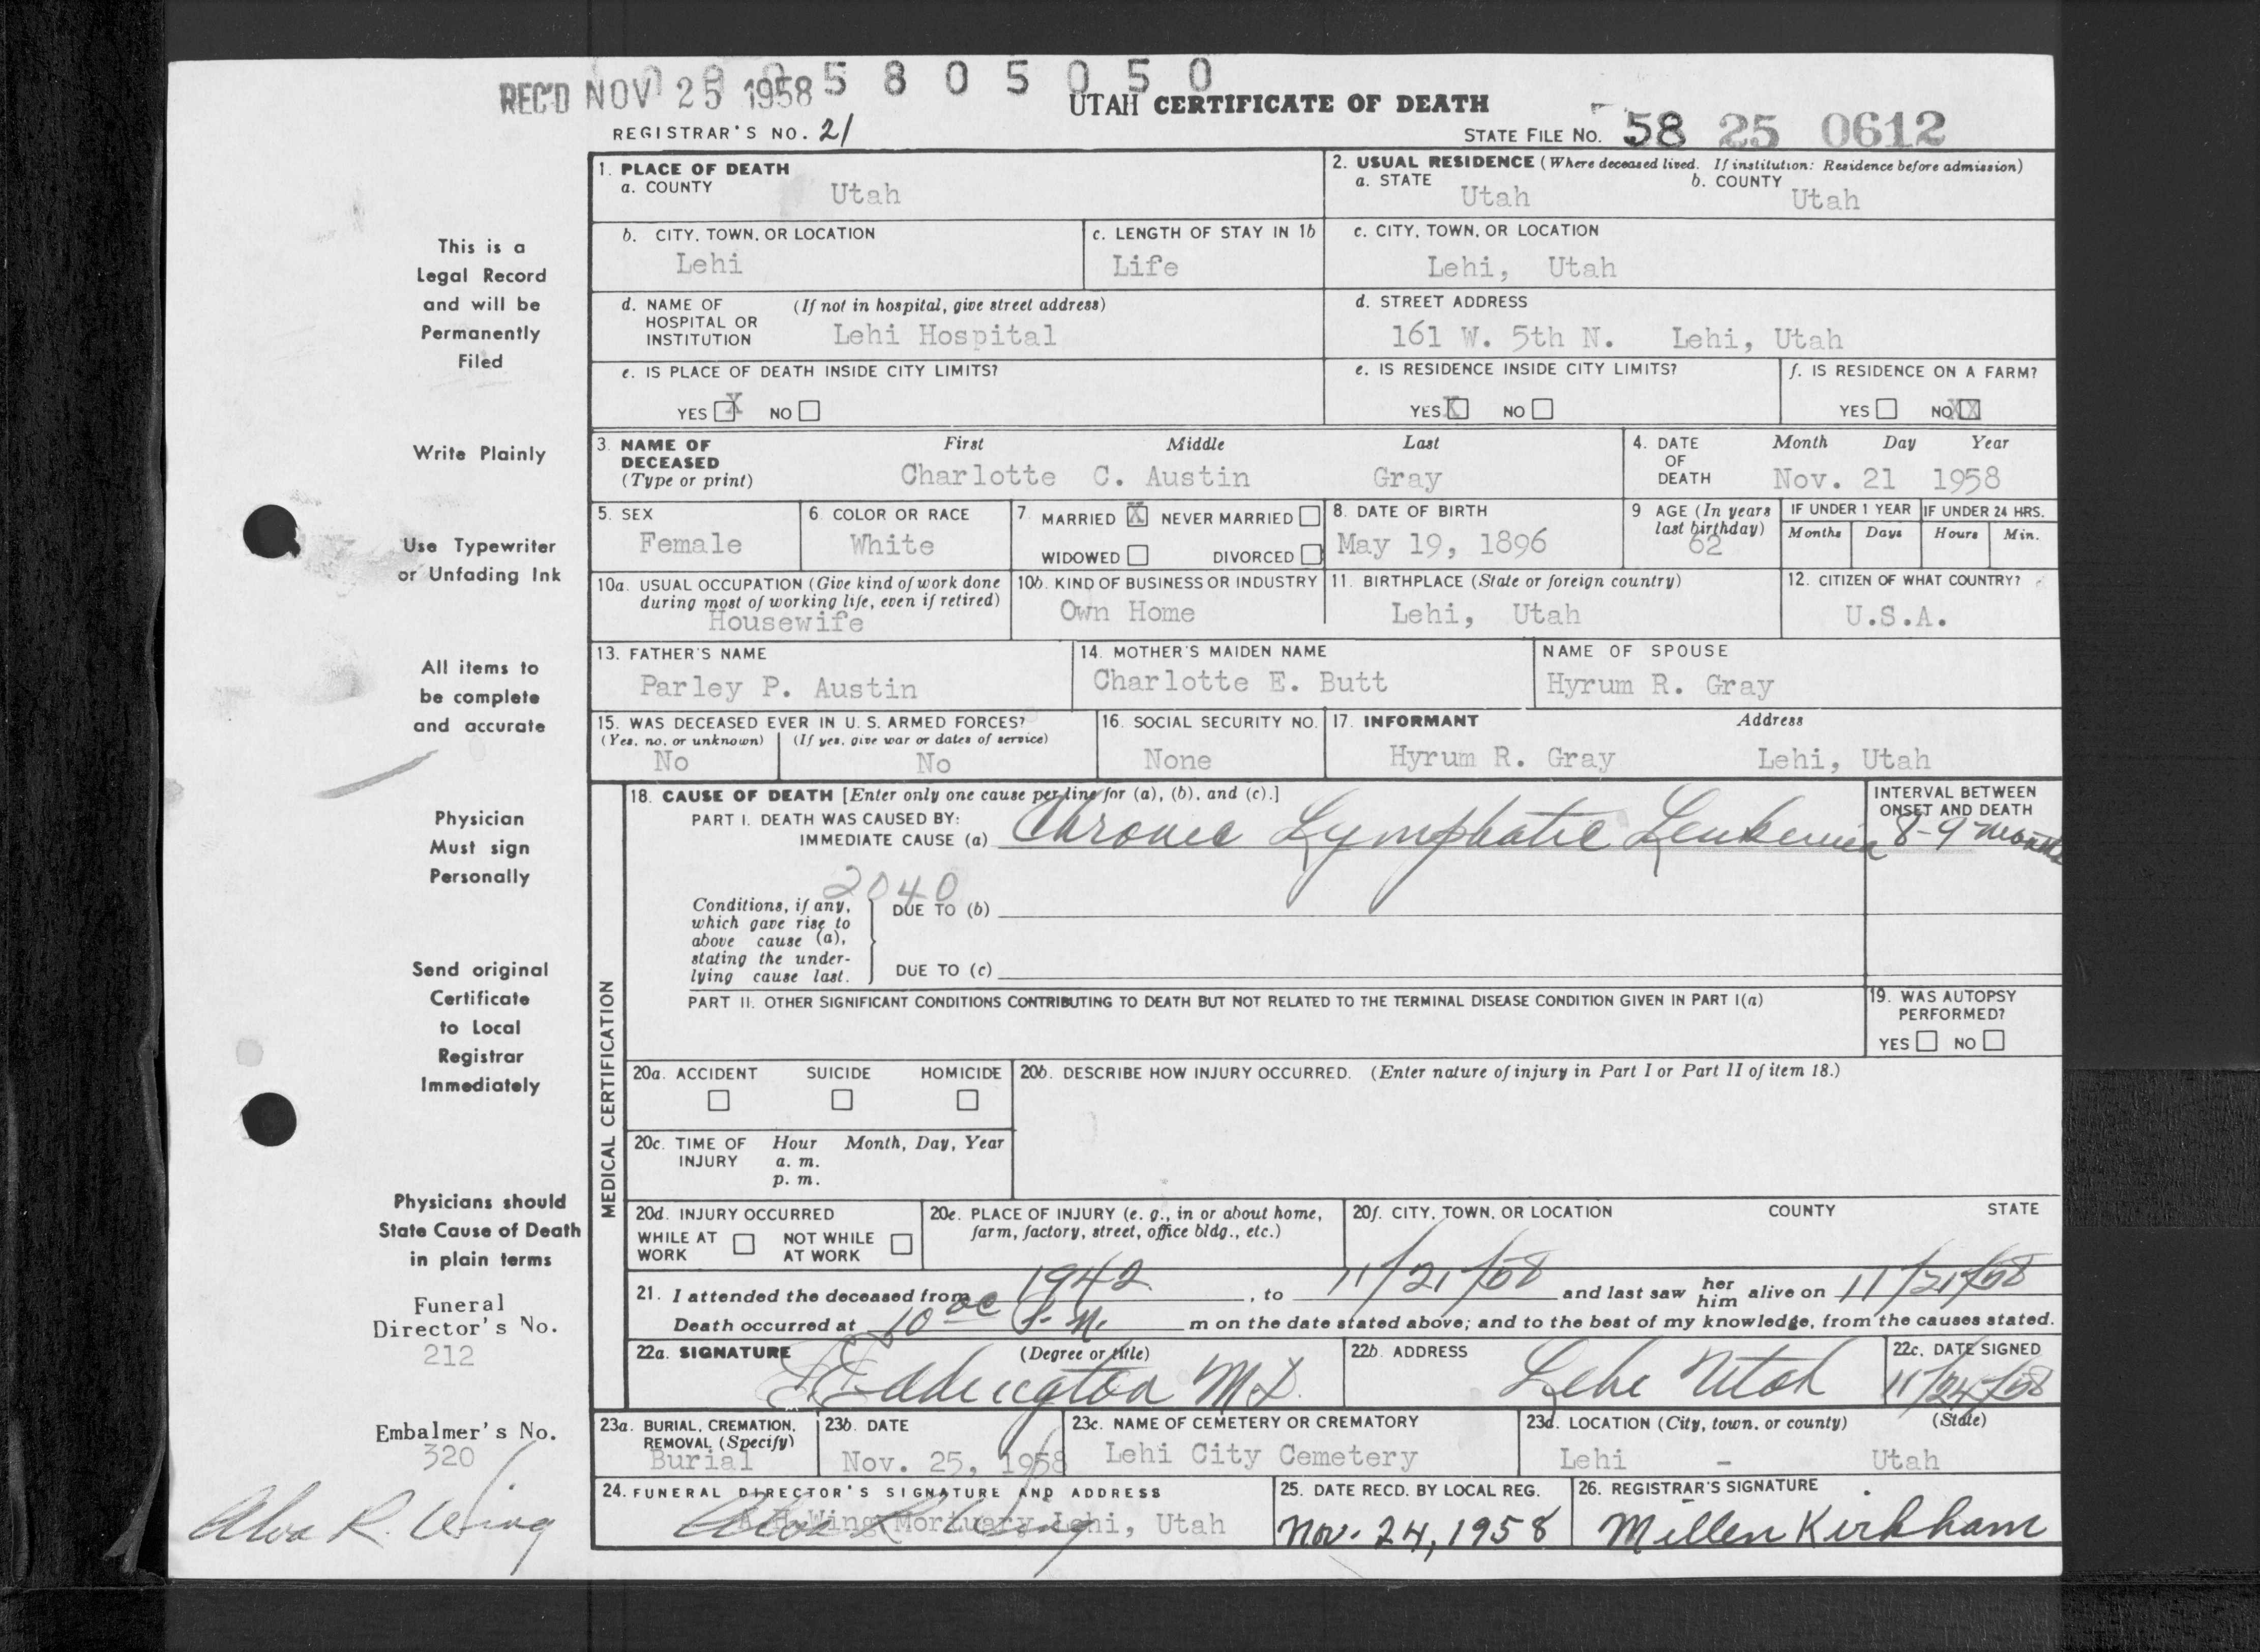 REC'D NOV 25 1958 5 8 0 5 0 5 0
UTAH CERTIFICATE OF DEATH
REGISTRAR'S NO. 21
STATE FILE NO. 58 25 0612
This is a
Legal Record
and will be
Permanently
Filed
Write Plainly
Use Typewriter
or Unfading Ink
All items to
be complete
and accurate
Physician
Must sign
Personally
Send original
Certificate
to Local
Registrar
Immediately
Physicians should
State Cause of Death
in plain terms
Funeral
Director's No.
212
Embalmer's No.
320
Alva R. Wing
1. PLACE OF DEATH
a. COUNTY Utah
2. USUAL RESIDENCE (Where deceased lived. If institution: Residence before admission)
a. STATE Utah b. COUNTY Utah
b. CITY, TOWN, OR LOCATION
Lehi
c. LENGTH OF STAY IN 1b
Life
c. CITY, TOWN, OR LOCATION
Lehi, Utah
d. NAME OF (If not in hospital, give street address)
HOSPITAL OR
INSTITUTION Lehi Hospital
d. STREET ADDRESS
161 W. 5th N. Lehi, Utah
e. IS PLACE OF DEATH INSIDE CITY LIMITS?
YES X NO
e. IS RESIDENCE INSIDE CITY LIMITS?
YES X NO
f. IS RESIDENCE ON A FARM?
YES NO XX
3. NAME OF First Middle Last
DECEASED
(Type or print) Charlotte C. Austin Gray
4. DATE Month Day Year
OF
DEATH Nov. 21 1958
5. SEX
Female
6. COLOR OR RACE
White
7. MARRIED X NEVER MARRIED
WIDOWED DIVORCED
8. DATE OF BIRTH
May 19, 1896
9 AGE (In years
last birthday)
62
IF UNDER 1 YEAR
Months Days
IF UNDER 24 HRS.
Hours Min.
10a. USUAL OCCUPATION (Give kind of work done
during most of working life, even if retired)
Housewife
10b. KIND OF BUSINESS OR INDUSTRY
Own Home
11. BIRTHPLACE (State or foreign country)
Lehi, Utah
12. CITIZEN OF WHAT COUNTRY?
U.S.A.
13. FATHER'S NAME
Parley P. Austin
14. MOTHER'S MAIDEN NAME
Charlotte E. Butt
NAME OF SPOUSE
Hyrum R. Gray
15. WAS DECEASED EVER IN U. S. ARMED FORCES?
(Yes, no, or unknown) (If yes, give war or dates of service)
No No
16. SOCIAL SECURITY NO.
None
17. INFORMANT Address
Hyrum R. Gray Lehi, Utah
MEDICAL CERTIFICATION
18. CAUSE OF DEATH [Enter only one cause per line for (a), (b), and (c).]
PART I. DEATH WAS CAUSED BY:
IMMEDIATE CAUSE (a) Chronic Lymphatic Leukemia
INTERVAL BETWEEN
ONSET AND DEATH
8-9 months
2040
Conditions, if any,
which gave rise to
above cause (a),
stating the under-
lying cause last.
DUE TO (b)
DUE TO (c)
PART II. OTHER SIGNIFICANT CONDITIONS CONTRIBUTING TO DEATH BUT NOT RELATED TO THE TERMINAL DISEASE CONDITION GIVEN IN PART I(a)
19. WAS AUTOPSY
PERFORMED?
YES NO
20a. ACCIDENT SUICIDE HOMICIDE
20b. DESCRIBE HOW INJURY OCCURRED. (Enter nature of injury in Part I or Part II of item 18.)
20c. TIME OF Hour Month, Day, Year
INJURY a. m.
p. m.
20d. INJURY OCCURRED
WHILE AT NOT WHILE
WORK AT WORK
20e. PLACE OF INJURY (e. g., in or about home,
farm, factory, street, office bldg., etc.)
20f. CITY, TOWN, OR LOCATION COUNTY STATE
21. I attended the deceased from 1942, to 11/21/58 and last saw her him alive on 11/21/58
Death occurred at 10 P. M. m on the date stated above; and to the best of my knowledge, from the causes stated.
22a. SIGNATURE (Degree or title)
Eddington M.D.
22b. ADDRESS
Lehi Utah
22c. DATE SIGNED
11/24/58
23a. BURIAL, CREMATION,
REMOVAL (Specify)
Burial
23b. DATE
Nov. 25, 1958
23c. NAME OF CEMETERY OR CREMATORY
Lehi City Cemetery
23d. LOCATION (City, town, or county) (State)
Lehi - Utah
24. FUNERAL DIRECTOR'S SIGNATURE AND ADDRESS
Alva R. Wing
Wing Mortuary Lehi, Utah
25. DATE RECD. BY LOCAL REG.
Nov. 24, 1958
26. REGISTRAR'S SIGNATURE
Millen Kirkham